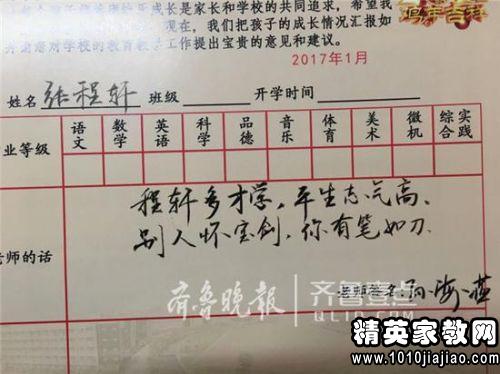 成长是家长和学校的共同追求，希望我
现在，我们把孩子的成长情况汇报如
对学校的教育教学工作提出宝贵的意见和建议。
鸡年吉祥
2017年1月
姓名 张程轩 班级 开学时间
业等级 语文 数学 英语 科学 品德 音乐 体育 美术 微机 综合实践
程轩多才学，平生志气高、
别人怀宝剑，你有笔如刀.
老师的话
老师签名 孙海燕
齐鲁晚报 齐鲁壹点
QLID.COM
精英家教网
www.1010jiajiao.com